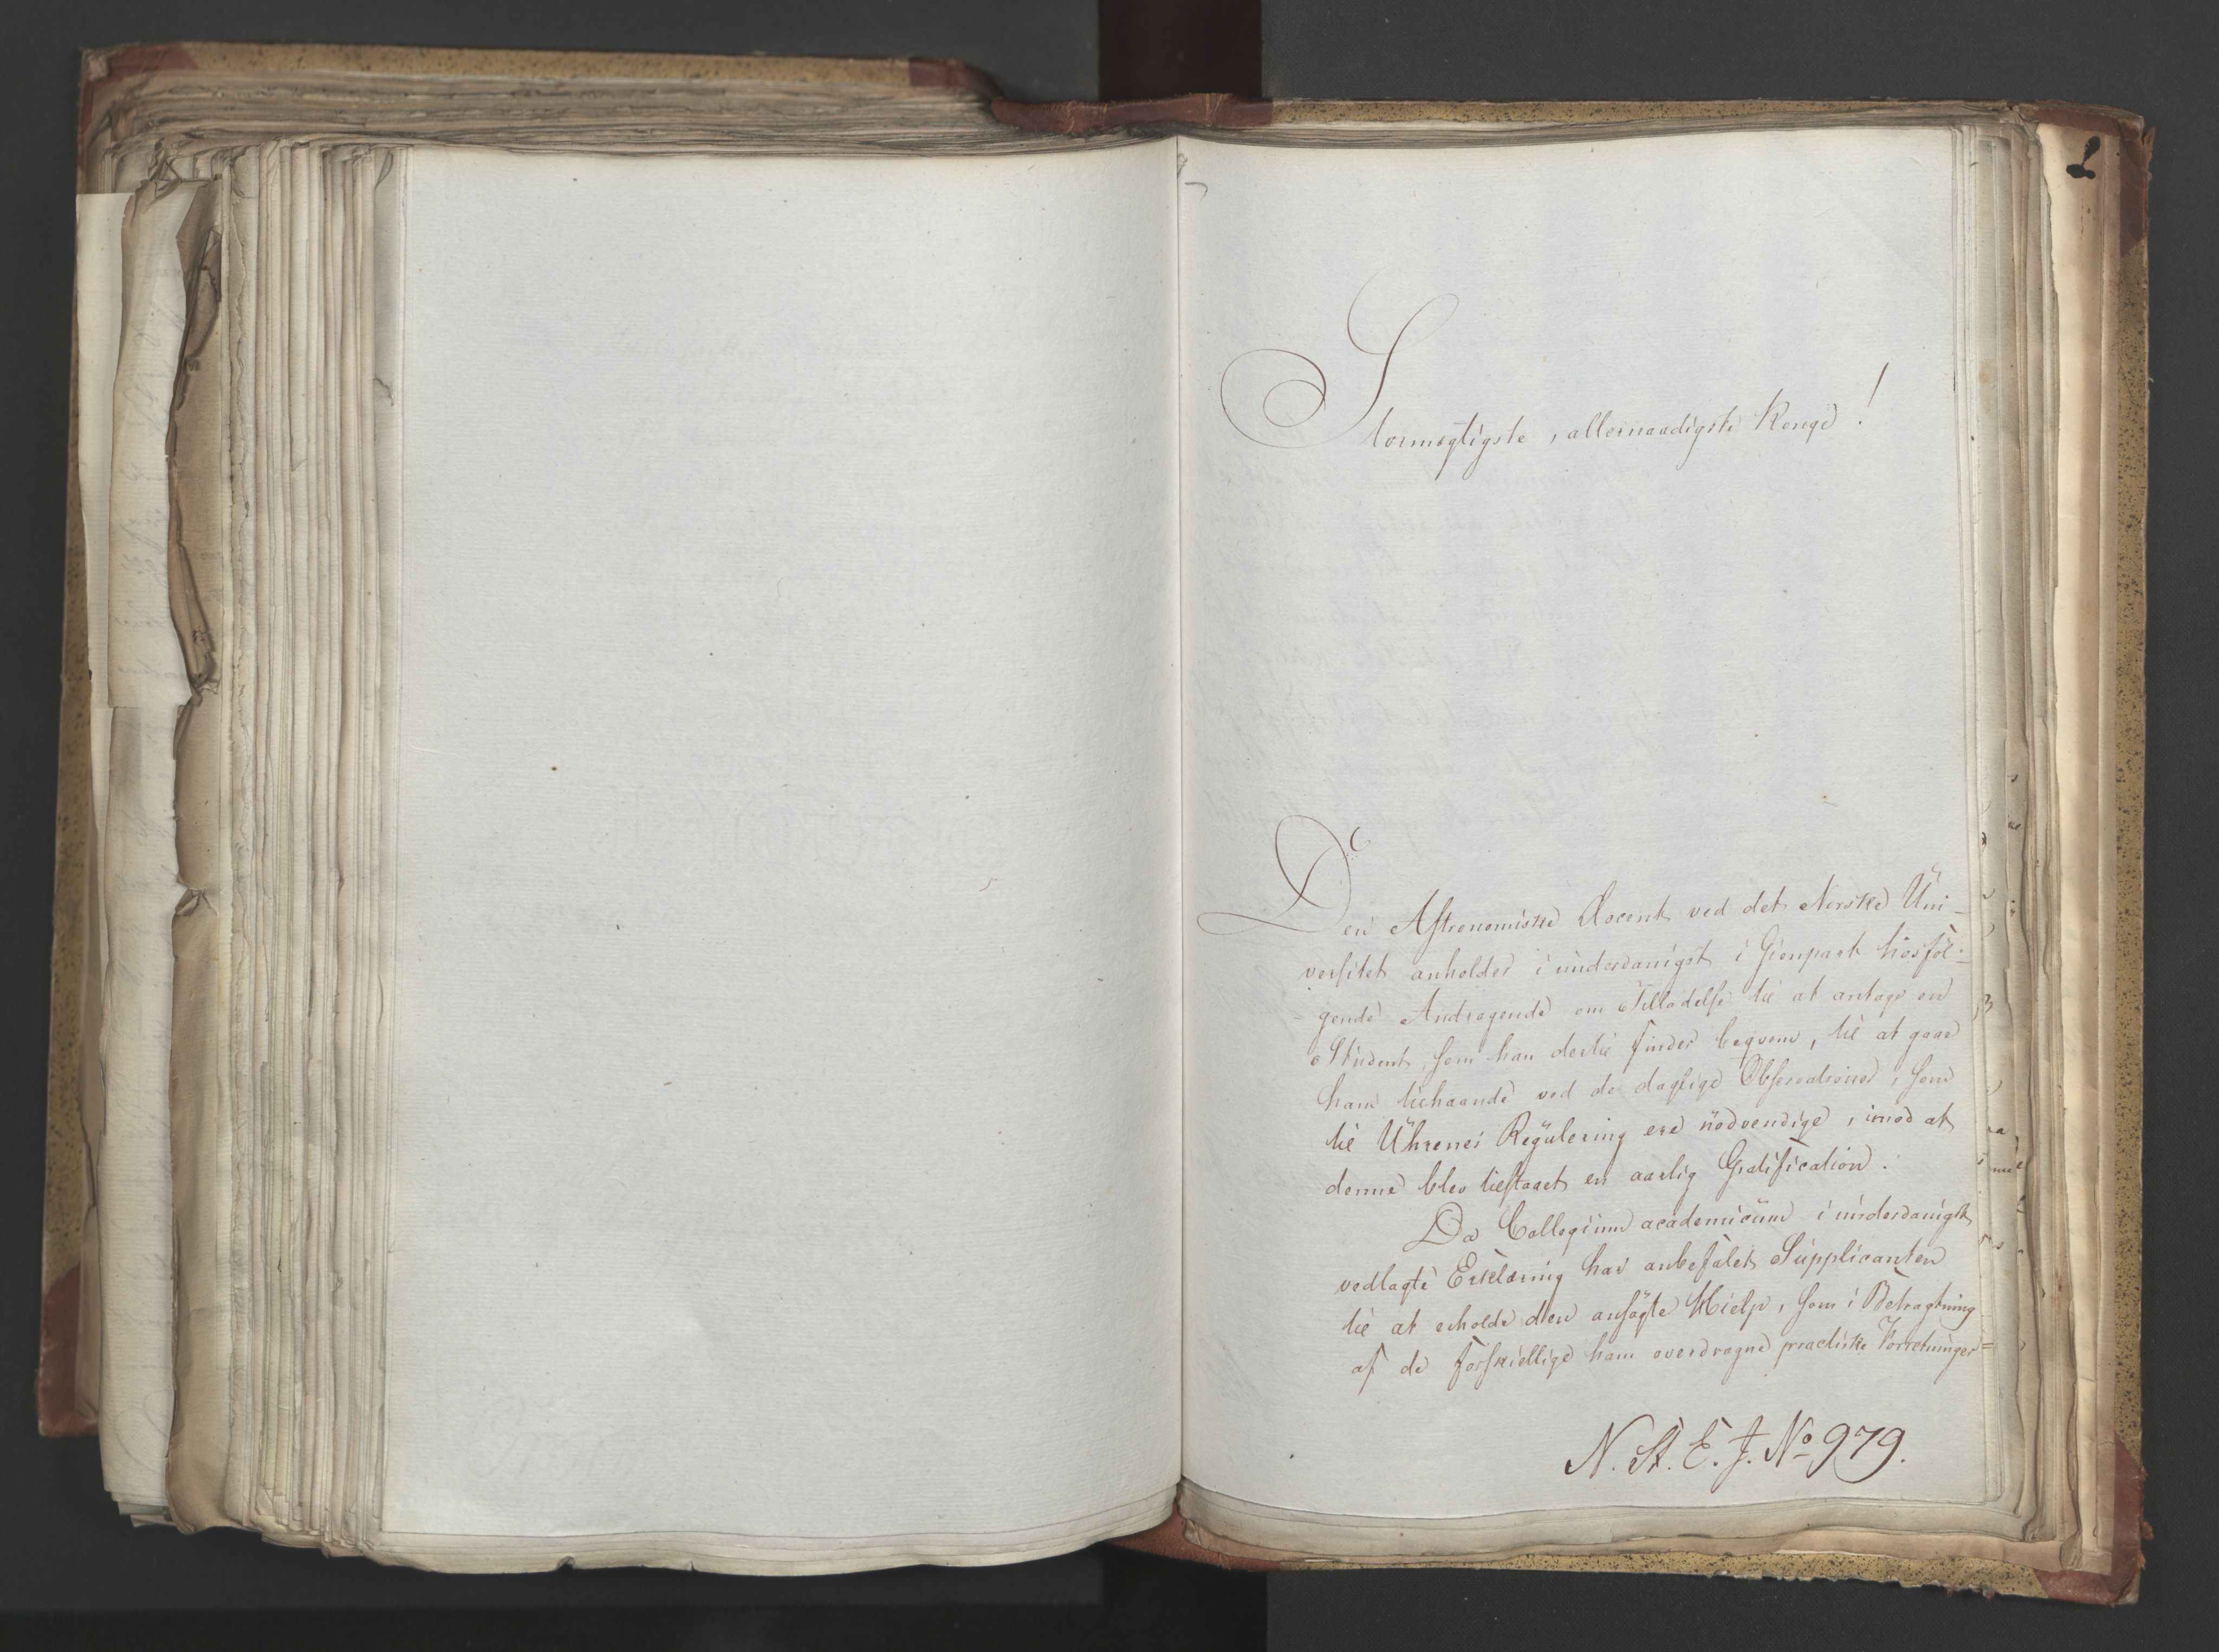 Stormægtigste, allernaadigste Konge!
Den Astronomiske Docent ved det Norske Uni-
versitet anholder i underdanigst i Gienpart hosføl-
gende Andragende om Tilladelse til at antage en
Student, som han dertil finder beqvem, til at gaae
ham tilhaande ved de daglige Observationer, som
til Uhrenes Regulering ere nødvendige, imod at
denne blev tilstaaet en aarlig Gratification.
Da Collegium academicum i underdanigst
vedlagte Erklæring har anbefalet Supplicanten
til at erholde den ansøgte Hielp, som i Betragtning
af de forskiellige ham overdragne practiske Forretninger
N. St. E. J. No 979.